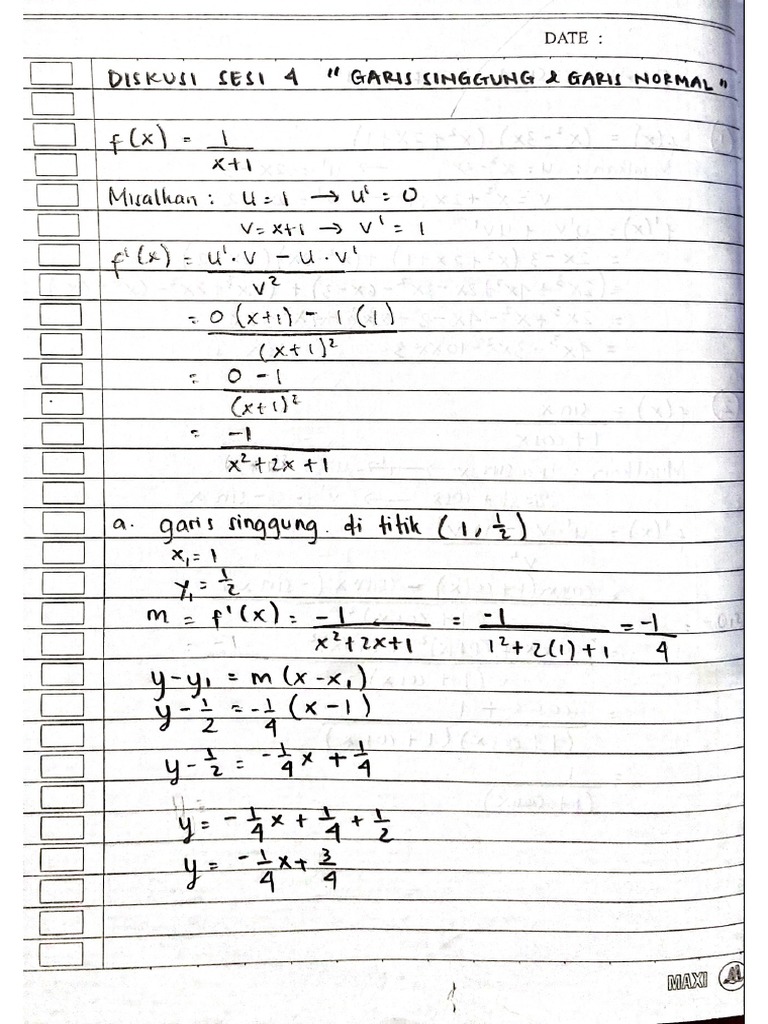 DATE :
DISKUSI SESI 4 "GARIS SINGGUNG & GARIS NORMAL"
f(x) = 1/(x+1)
Misalkan : u = 1 → u' = 0
v = x+1 → v' = 1
f'(x) = (u'·v - u·v')/v²
= (0(x+1) - 1(1))/(x+1)²
= (0-1)/(x+1)²
= -1/(x²+2x+1)
a. garis singgung. di titik (1, 1/2)
x₁ = 1
y₁ = 1/2
m = f'(x) = -1/(x²+2x+1) = -1/(1²+2(1)+1) = -1/4
y-y₁ = m(x-x₁)
y-1/2 = -1/4 (x-1)
y-1/2 = -1/4x + 1/4
y = -1/4x + 1/4 + 1/2
y = -1/4x + 3/4
MAXI